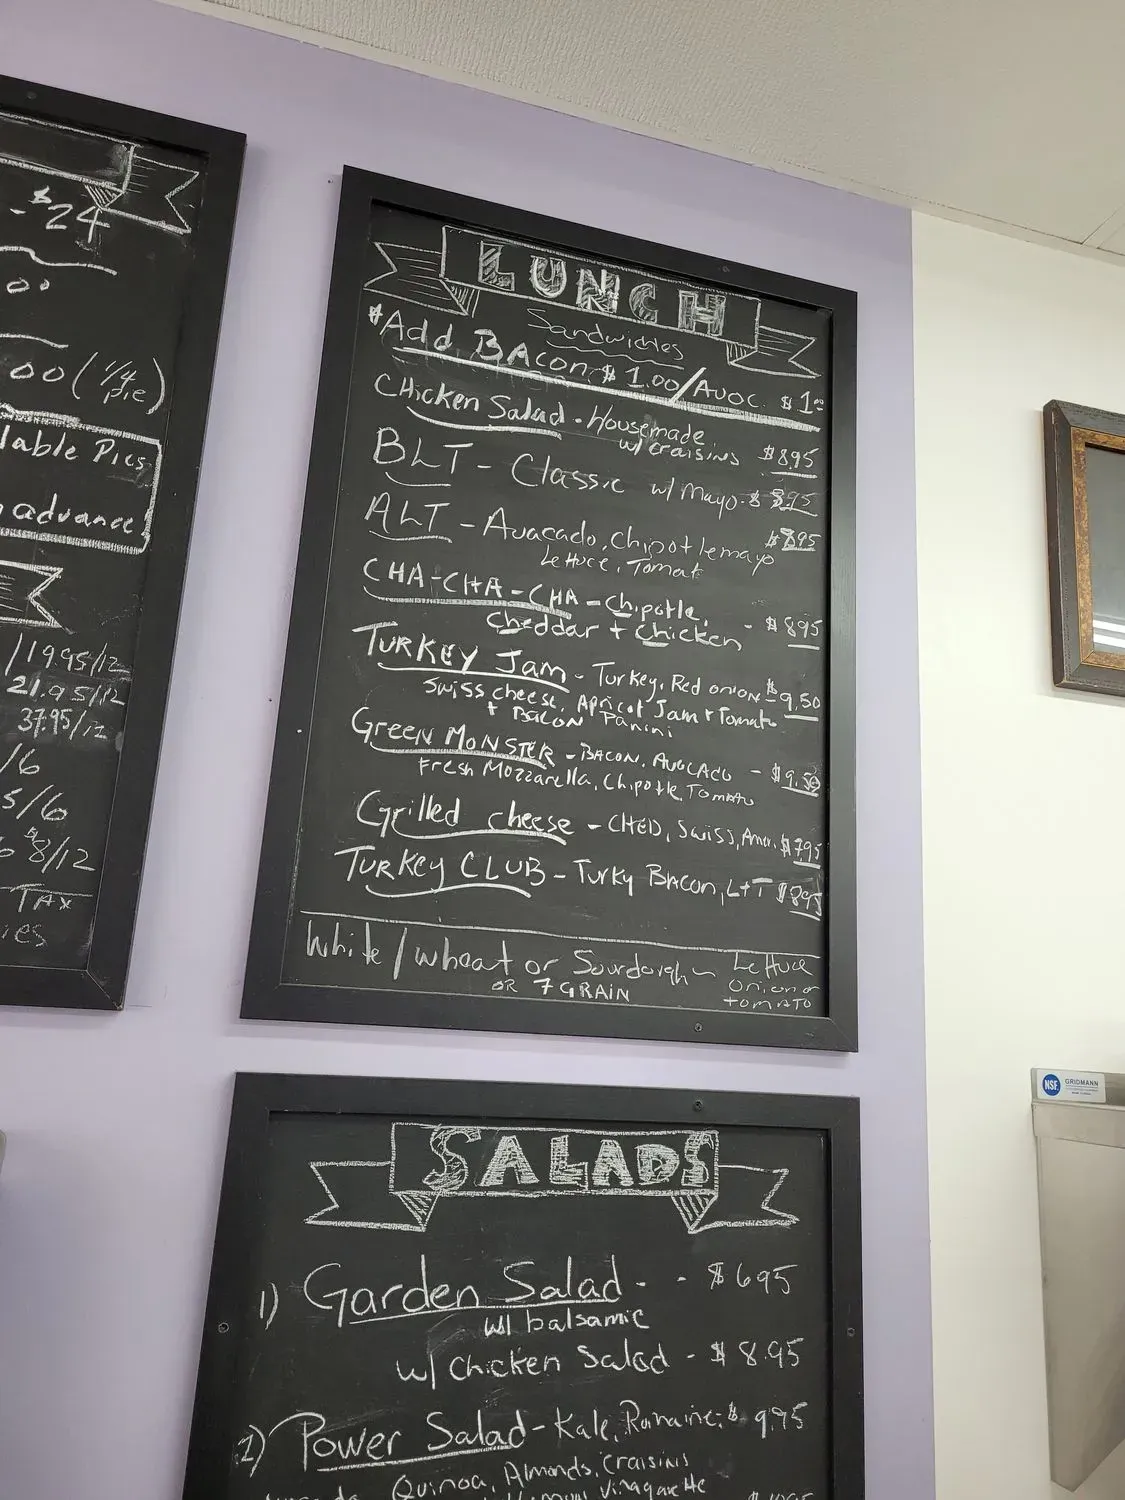 - $24
00
00 (1/4 pie)
lable Pies
advance.
19.95/12
21.95/12
37.95/12
/6
5/6
$8/12
TAX
ies
LUNCH
Sandwiches
*Add BACON $1.00/AVOC. $1.00
CHicken Salad - Housemade $8.95
w/ craisins
BLT - Classic w/ Mayo - $8.95
ALT - Avacado, Chipotle mayo $8.95
Lettuce, Tomat
CHA-CHA-CHA - Chipotle, - $8.95
Cheddar + Chicken
TURKEY Jam - Turkey, Red onion $9.50
Swiss cheese, Apricot Jam + Tomato
+ BACON Panini
Green MONSTER - BACON, AVOCADO - $9.50
Fresh Mozzarella, Chipotle, Tomato
Grilled cheese - CHED, Swiss, Amer. $7.95
TURKEY CLUB - Turky BACON, L+T $8.95
White / wheat or Sourdough ~ Lettuce
OR 7 GRAIN Onion or
tomato
NSF. GRIDMANN
SALADS
1) Garden Salad - - $6.95
w/ balsamic
w/ Chicken Salad - $8.95
2) Power Salad - Kale, Romaine, $9.95
Quinoa, Almonds, Craisins
Vinagarette